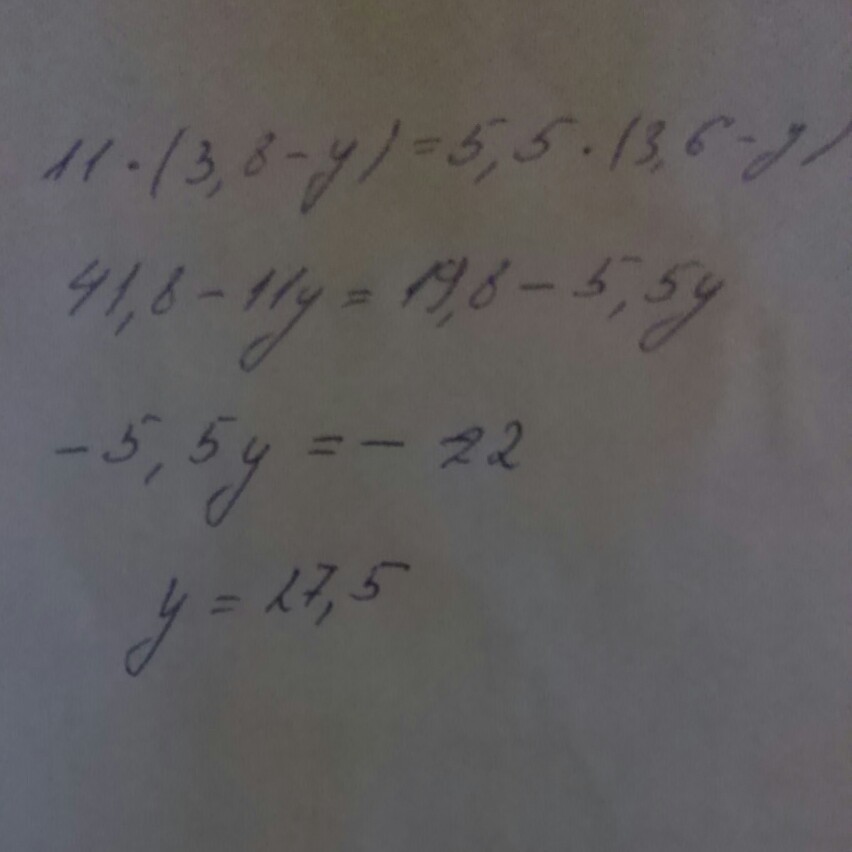 11·(3,8-y)=5,5·(3,6-y)
41,8-11y=19,8-5,5y
-5,5y=-22
y=27,5